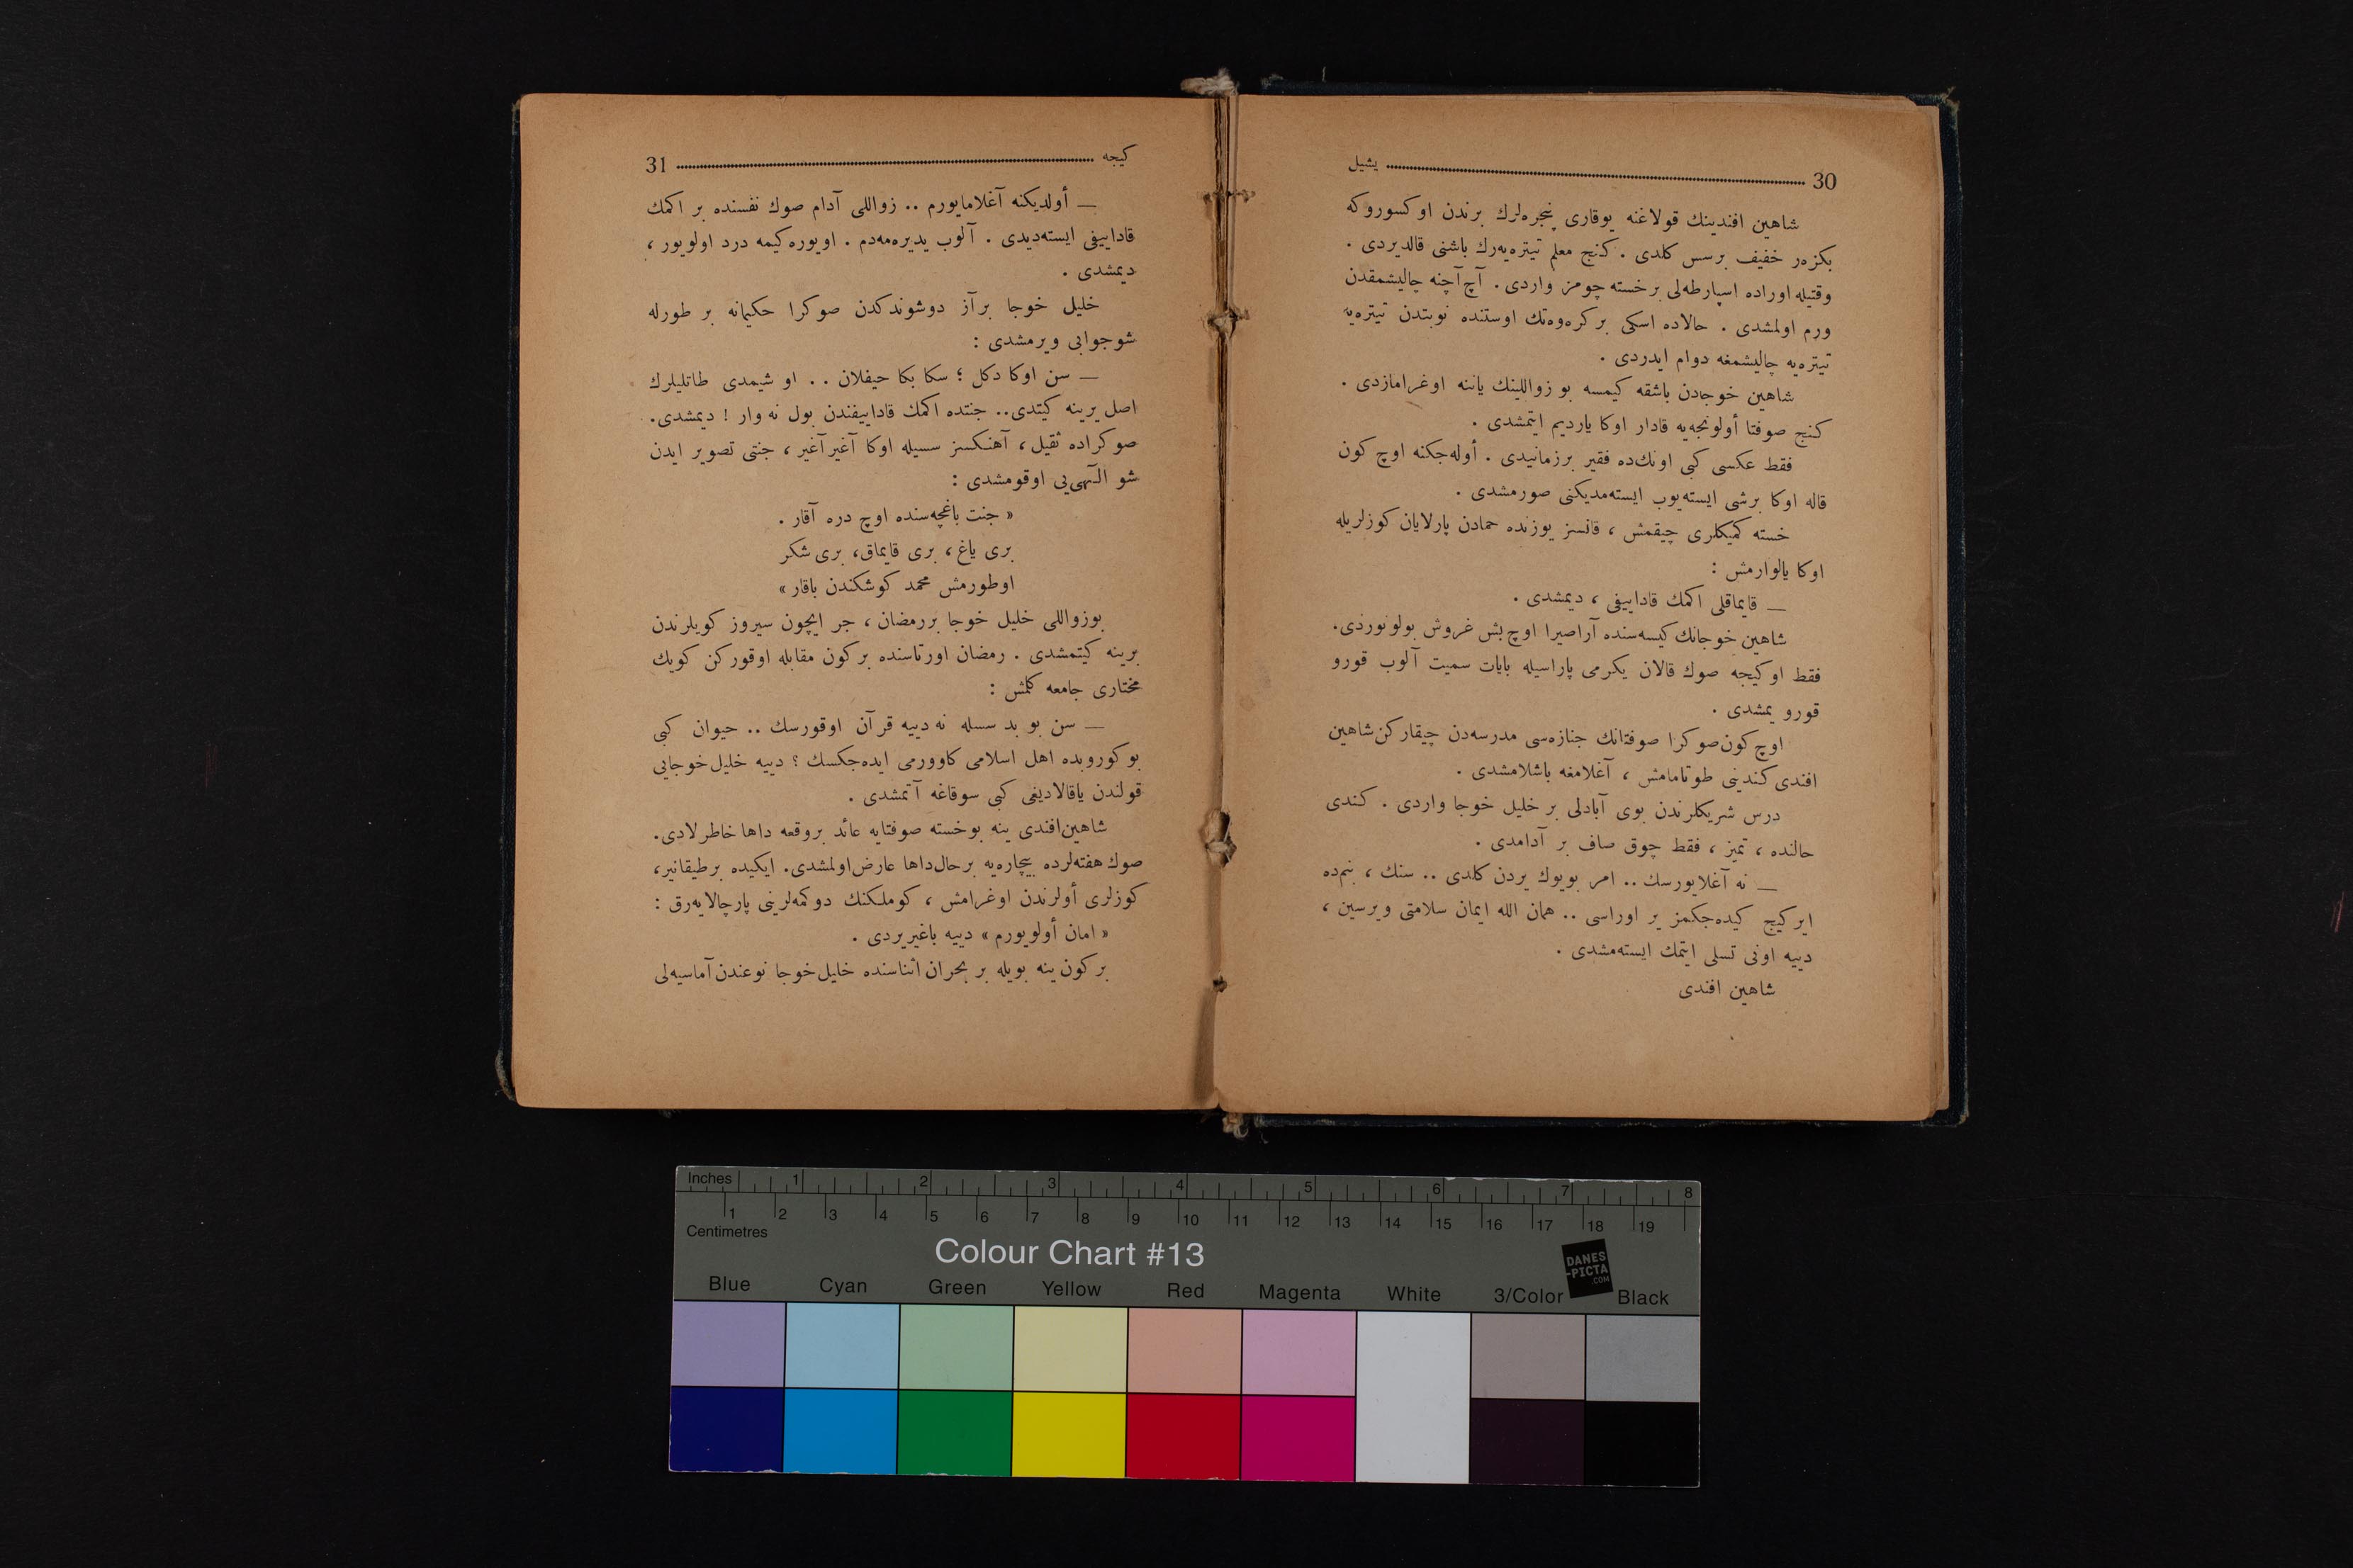 30 يشيل
شاهين افندينك قولاغنه يوقارى پنجره‌لرك برندن اوكسوروكه
بكزه‌ر خفيف برسس كلدى . كنج معلم تيتره‌يه‌رك باشنى قالديردى .
وقتيله اوراده اسپارطه‌لى برخسته چومز واردى . آچ آچنه چاليشمقدن
ورم اولمشدى . حالاده اسكى بر كره‌وه‌تك اوستنده نوبتدن تيتره‌يه
تيتره‌يه چاليشمغه دوام ايدردى .
شاهين خوجادن باشقه كيمسه بو زواللينك ياننه اوغرامازدى .
كنج صوفتا أولونجه‌يه قادار اوكا يارديم ايتمشدى .
فقط عكسى كبى اونك‌ده فقير برزمانيدى . أوله‌جكنه اوچ كون
قاله اوكا برشى ايسته‌يوب ايسته‌مديكنى صورمشدى .
خسته كميكلرى چيقمش ، قانسز يوزنده حمادن پارلايان كوزلريله
اوكا يالوارمش :
— قايماقلى اكمك قاداييفى ، ديمشدى .
شاهين خوجانك كيسه‌سنده آراصيرا اوچ بش غروش بولونوردى.
فقط اوكيجه صوك قالان يكرمى پاراسيله بايات سميت آلوب قورو
قورو يمشدى .
اوچ كون صوكرا صوفتانك جنازه‌سى مدرسه‌دن چيقاركن شاهين
افندى كندينى طوتامامش ، آغلامغه باشلامشدى .
درس شريكلرندن بوى آبادلى بر خليل خوجا واردى . كندى
حالنده ، تميز ، فقط چوق صاف بر آدامدى .
— نه آغلايورسك .. امر بويوك يردن كلدى .. سنك ، بنم‌ده
اير كيچ كيده‌جكمز ير اوراسى .. همان الله ايمان سلامتى ويرسين ،
دييه اونى تسلى ايتمك ايسته‌مشدى .
شاهين افندى
كيجه 31
— أولديكنه آغلامايورم .. زواللى آدام صوك نفسنده بر اكمك
قاداييفى ايسته‌ديدى . آلوب يديره‌مه‌دم . اويوره كيمه درد اولويور ،
ديمشدى .
خليل خوجا برآز دوشوندكدن صوكرا حكيمانه بر طورله
شوجوابى ويرمشدى :
— سن اوكا دكل ؛ سكا بكا حيفلان .. او شيمدى طاتليلرك
اصل يرينه كيتدى.. جنتده اكمك قاداييفندن بول نه وار ! ديمشدى.
صوكراده ثقيل ، آهنكسز سسيله اوكا آغير آغير ، جنتى تصوير ايدن
شو الٓهى‌يى اوقومشدى :
« جنت باغچه‌سنده اوچ دره آقار .
برى ياغ ، برى قايماق، برى شكر
اوطورمش محمد كوشكندن باقار »
بوزواللى خليل خوجا بررمضان ، جر ايچون سيروز كويلرندن
برينه كيتمشدى . رمضان اورتاسنده بركون مقابله اوقوركن كويك
مختارى جامعه كلمش :
— سن بو بد سسله نه دييه قرآن اوقورسك .. حيوان كبى
بوكوروبده اهل اسلامى كاوورمى ايده‌جكسك ؟ دييه خليل خوجايى
قولندن ياقالاديغى كبى سوقاغه آتمشدى .
شاهين‌افندى ينه بوخسته صوفتايه عائد بروقعه داها خاطرلادى.
صوك هفته‌لرده بيچاره‌يه برحال داها عارض اولمشدى. ايكيده برطيقانير،
كوزلرى أولرندن اوغرامش ، كوملكنك دوكمه‌لرينى پارچالايه‌رق :
« امان أولويورم » دييه باغيريردى .
بركون ينه بويله بر بحران اثناسنده خليل خوجا نوعندن آماسيه‌لى
Inches 1 2 3 4 5 6 7 8
1 2 3 4 5 6 7 8 9 10 11 12 13 14 15 16 17 18 19
Centimetres
Colour Chart #13
DANES
-PICTA
.COM
Blue Cyan Green Yellow Red Magenta White 3/Color Black